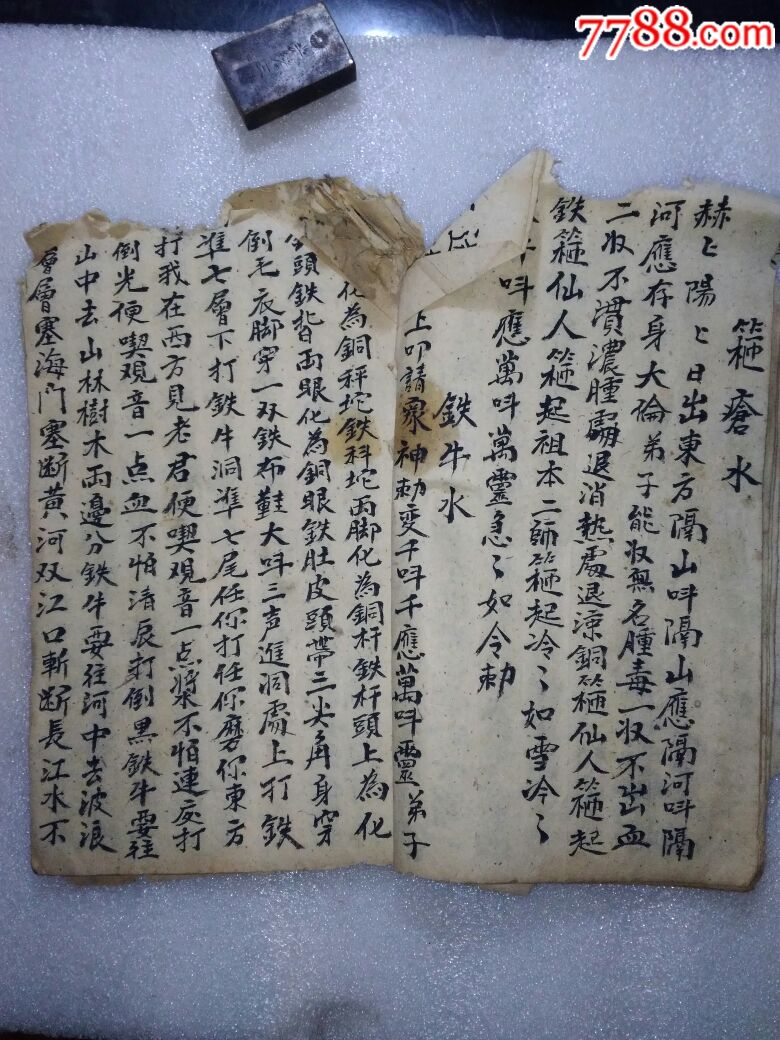 7788.com
箍瘡水
赫〻陽〻日出東方隔山呌隔山應隔河呌隔
河應存身大倫弟子能收無名腫毒一收不出血
二收不潰濃腫處退消热處退凉銅箍仙人箍起
鉄箍仙人箍起祖本二師箍起冷〻如雪冷〻
千呌應萬呌萬靈急〻如令勅
鉄牛水
上叩請眾神勅变千呌千應萬呌靈弟子
化為銅秤坨鉄科坨両脚化為銅杆鉄杆頭上為化
頭鉄背両眼化為銅眼鉄肚皮頭帶三尖角身穿
倒毛衣脚穿一双鉄布鞋大呌三声進洞處上打鉄
準七層下打鉄牛洞準七尾任你打任你磨你東方
打我在西方見老君便喫观音一点漿不怕連夜打
倒光便喫观音一点血不怕清辰打倒黑鉄牛要往
山中去山林樹木両邊分鉄牛要往河中去波浪
層層塞海门塞断黄河双江口斬断長江水不